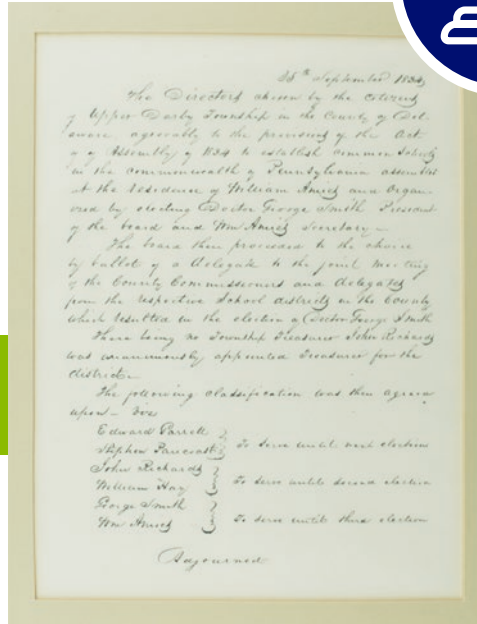 25th September 1834
The Directors chosen by the citizens
of Upper Darby Township in the County of Del
aware, agreeably to the provisions of the Act
of Assembly of 1834 to establish common schools
in the commonwealth of Pennsylvania assembled
at the residence of William Amies and organ
ized by electing Doctor George Smith President
of the board and Wm Amies Secretary –
The board then proceeded to the choice
by ballot of a delegate to the joint meeting
of the County Commissioners and delegates
from the respective school districts in the County
which resulted in the election of Doctor George Smith
There being no Township Treasurer John Richards
was unanimously appointed Treasurer for the
district –
The following classification was then agreed
upon –
Edward Garrett
Stephen Pancoast } To serve until next election
John Richards
William Hay } To serve until second election
George Smith
Wm Amies } To serve until third election
Adjourned